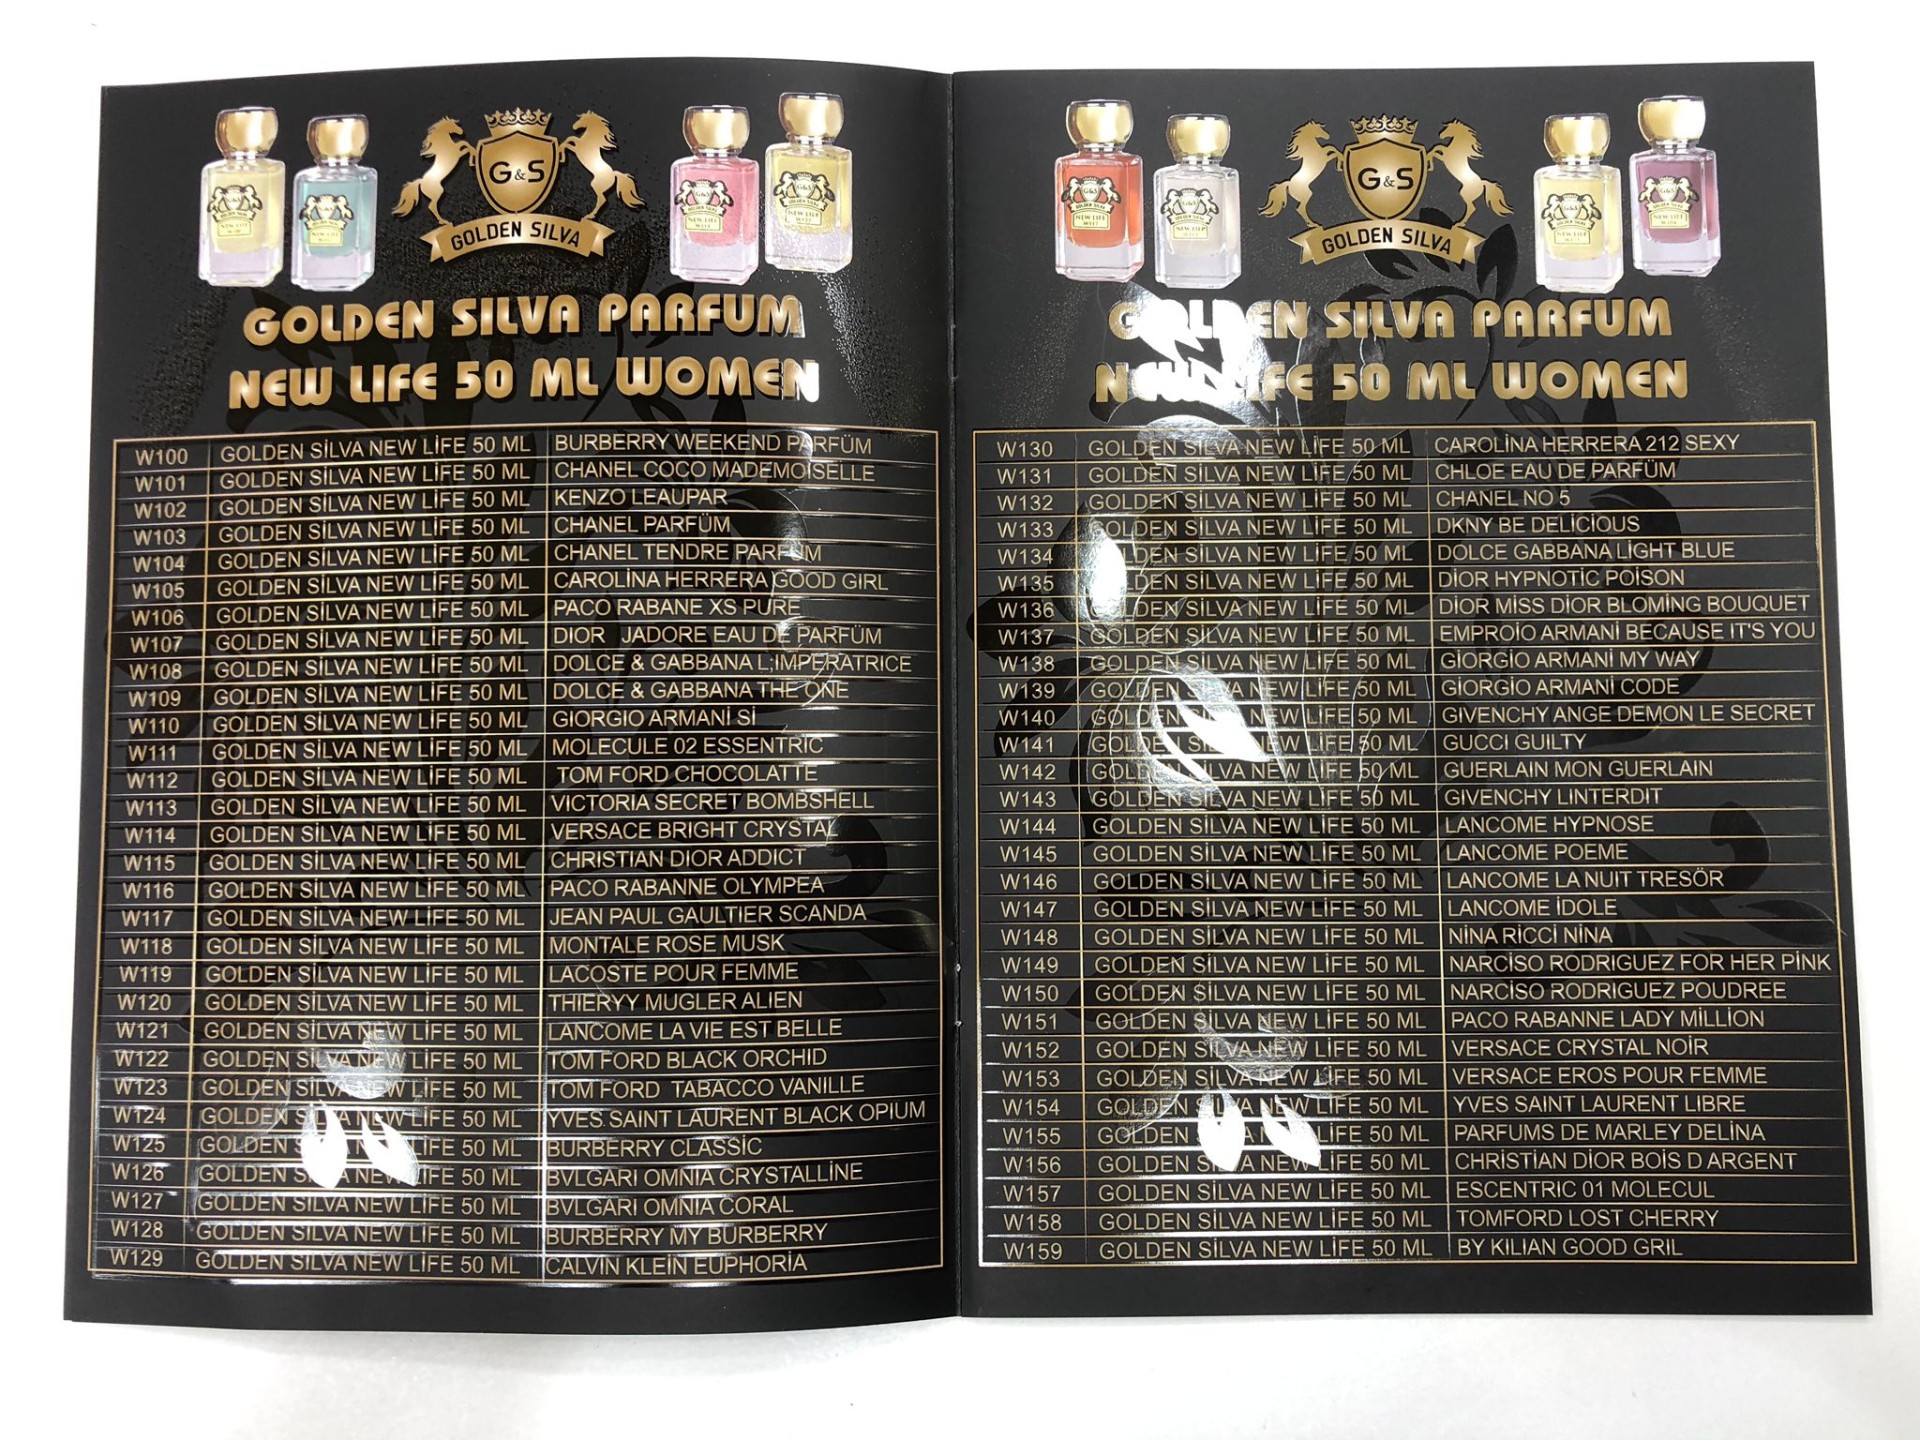 G&S
GOLDEN SILVA
GOLDEN SILVA PARFUM
NEW LIFE 50 ML WOMEN
W100 GOLDEN SİLVA NEW LİFE 50 ML BURBERRY WEEKEND PARFÜM
W101 GOLDEN SİLVA NEW LİFE 50 ML CHANEL COCO MADEMOISELLE
W102 GOLDEN SİLVA NEW LİFE 50 ML KENZO LEAUPAR
W103 GOLDEN SİLVA NEW LİFE 50 ML CHANEL PARFÜM
W104 GOLDEN SİLVA NEW LİFE 50 ML CHANEL TENDRE PARFUM
W105 GOLDEN SİLVA NEW LİFE 50 ML CAROLİNA HERRERA GOOD GIRL
W106 GOLDEN SİLVA NEW LİFE 50 ML PACO RABANE XS PURE
W107 GOLDEN SİLVA NEW LİFE 50 ML DIOR JADORE EAU DE PARFÜM
W108 GOLDEN SİLVA NEW LİFE 50 ML DOLCE & GABBANA L;IMPERATRICE
W109 GOLDEN SİLVA NEW LİFE 50 ML DOLCE & GABBANA THE ONE
W110 GOLDEN SİLVA NEW LİFE 50 ML GIORGIO ARMANİ Sİ
W111 GOLDEN SİLVA NEW LİFE 50 ML MOLECULE 02 ESSENTRIC
W112 GOLDEN SİLVA NEW LİFE 50 ML TOM FORD CHOCOLATTE
W113 GOLDEN SİLVA NEW LİFE 50 ML VICTORIA SECRET BOMBSHELL
W114 GOLDEN SİLVA NEW LİFE 50 ML VERSACE BRIGHT CRYSTAL
W115 GOLDEN SİLVA NEW LİFE 50 ML CHRISTIAN DIOR ADDICT
W116 GOLDEN SİLVA NEW LİFE 50 ML PACO RABANNE OLYMPEA
W117 GOLDEN SİLVA NEW LİFE 50 ML JEAN PAUL GAULTIER SCANDA
W118 GOLDEN SİLVA NEW LİFE 50 ML MONTALE ROSE MUSK
W119 GOLDEN SİLVA NEW LİFE 50 ML LACOSTE POUR FEMME
W120 GOLDEN SİLVA NEW LİFE 50 ML THIERYY MUGLER ALIEN
W121 GOLDEN SİLVA NEW LİFE 50 ML LANCOME LA VIE EST BELLE
W122 GOLDEN SİLVA NEW LİFE 50 ML TOM FORD BLACK ORCHID
W123 GOLDEN SİLVA NEW LİFE 50 ML TOM FORD TABACCO VANILLE
W124 GOLDEN SİLVA NEW LİFE 50 ML YVES. SAINT LAURENT BLACK OPIUM
W125 GOLDEN SİLVA NEW LİFE 50 ML BURBERRY CLASSİC
W126 GOLDEN SİLVA NEW LİFE 50 ML BVLGARI OMNIA CRYSTALLİNE
W127 GOLDEN SİLVA NEW LİFE 50 ML BVLGARI OMNIA CORAL
W128 GOLDEN SİLVA NEW LİFE 50 ML BURBERRY MY BURBERRY
W129 GOLDEN SİLVA NEW LİFE 50 ML CALVİN KLEİN EUPHORİA
G&S
GOLDEN SILVA
GOLDEN SILVA PARFUM
NEW LIFE 50 ML WOMEN
W130 GOLDEN SİLVA NEW LİFE 50 ML CAROLİNA HERRERA 212 SEXY
W131 GOLDEN SİLVA NEW LİFE 50 ML CHLOE EAU DE PARFÜM
W132 GOLDEN SİLVA NEW LİFE 50 ML CHANEL NO 5
W133 GOLDEN SİLVA NEW LİFE 50 ML DKNY BE DELİCİOUS
W134 GOLDEN SİLVA NEW LİFE 50 ML DOLCE GABBANA LİGHT BLUE
W135 GOLDEN SİLVA NEW LİFE 50 ML DİOR HYPNOTİC POİSON
W136 GOLDEN SİLVA NEW LİFE 50 ML DİOR MİSS DİOR BLOMİNG BOUQUET
W137 GOLDEN SİLVA NEW LİFE 50 ML EMPROİO ARMANİ BECAUSE IT'S YOU
W138 GOLDEN SİLVA NEW LİFE 50 ML GİORGİO ARMANİ MY WAY
W139 GOLDEN SİLVA NEW LİFE 50 ML GİORGİO ARMANİ CODE
W140 GOLDEN SİLVA NEW LİFE 50 ML GIVENCHY ANGE DEMON LE SECRET
W141 GOLDEN SİLVA NEW LİFE 50 ML GUCCI GUILTY
W142 GOLDEN SİLVA NEW LİFE 50 ML GUERLAIN MON GUERLAIN
W143 GOLDEN SİLVA NEW LİFE 50 ML GIVENCHY LINTERDIT
W144 GOLDEN SİLVA NEW LİFE 50 ML LANCOME HYPNOSE
W145 GOLDEN SİLVA NEW LİFE 50 ML LANCOME POEME
W146 GOLDEN SİLVA NEW LİFE 50 ML LANCOME LA NUIT TRESÖR
W147 GOLDEN SİLVA NEW LİFE 50 ML LANCOME İDOLE
W148 GOLDEN SİLVA NEW LİFE 50 ML NİNA RİCCİ NİNA
W149 GOLDEN SİLVA NEW LİFE 50 ML NARCİSO RODRIGUEZ FOR HER PİNK
W150 GOLDEN SİLVA NEW LİFE 50 ML NARCİSO RODRIGUEZ POUDREE
W151 GOLDEN SİLVA NEW LİFE 50 ML PACO RABANNE LADY MİLLİON
W152 GOLDEN SİLVA NEW LİFE 50 ML VERSACE CRYSTAL NOİR
W153 GOLDEN SİLVA NEW LİFE 50 ML VERSACE EROS POUR FEMME
W154 GOLDEN SİLVA NEW LİFE 50 ML YVES SAINT LAURENT LIBRE
W155 GOLDEN SİLVA NEW LİFE 50 ML PARFUMS DE MARLEY DELİNA
W156 GOLDEN SİLVA NEW LİFE 50 ML CHRİSTİAN DİOR BOİS D ARGENT
W157 GOLDEN SİLVA NEW LİFE 50 ML ESCENTRIC 01 MOLECUL
W158 GOLDEN SİLVA NEW LİFE 50 ML TOMFORD LOST CHERRY
W159 GOLDEN SİLVA NEW LİFE 50 ML BY KILIAN GOOD GRIL